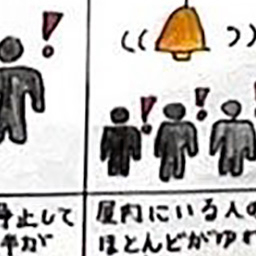 静止して
半が
屋内にいる人の
ほとんどがゆれ